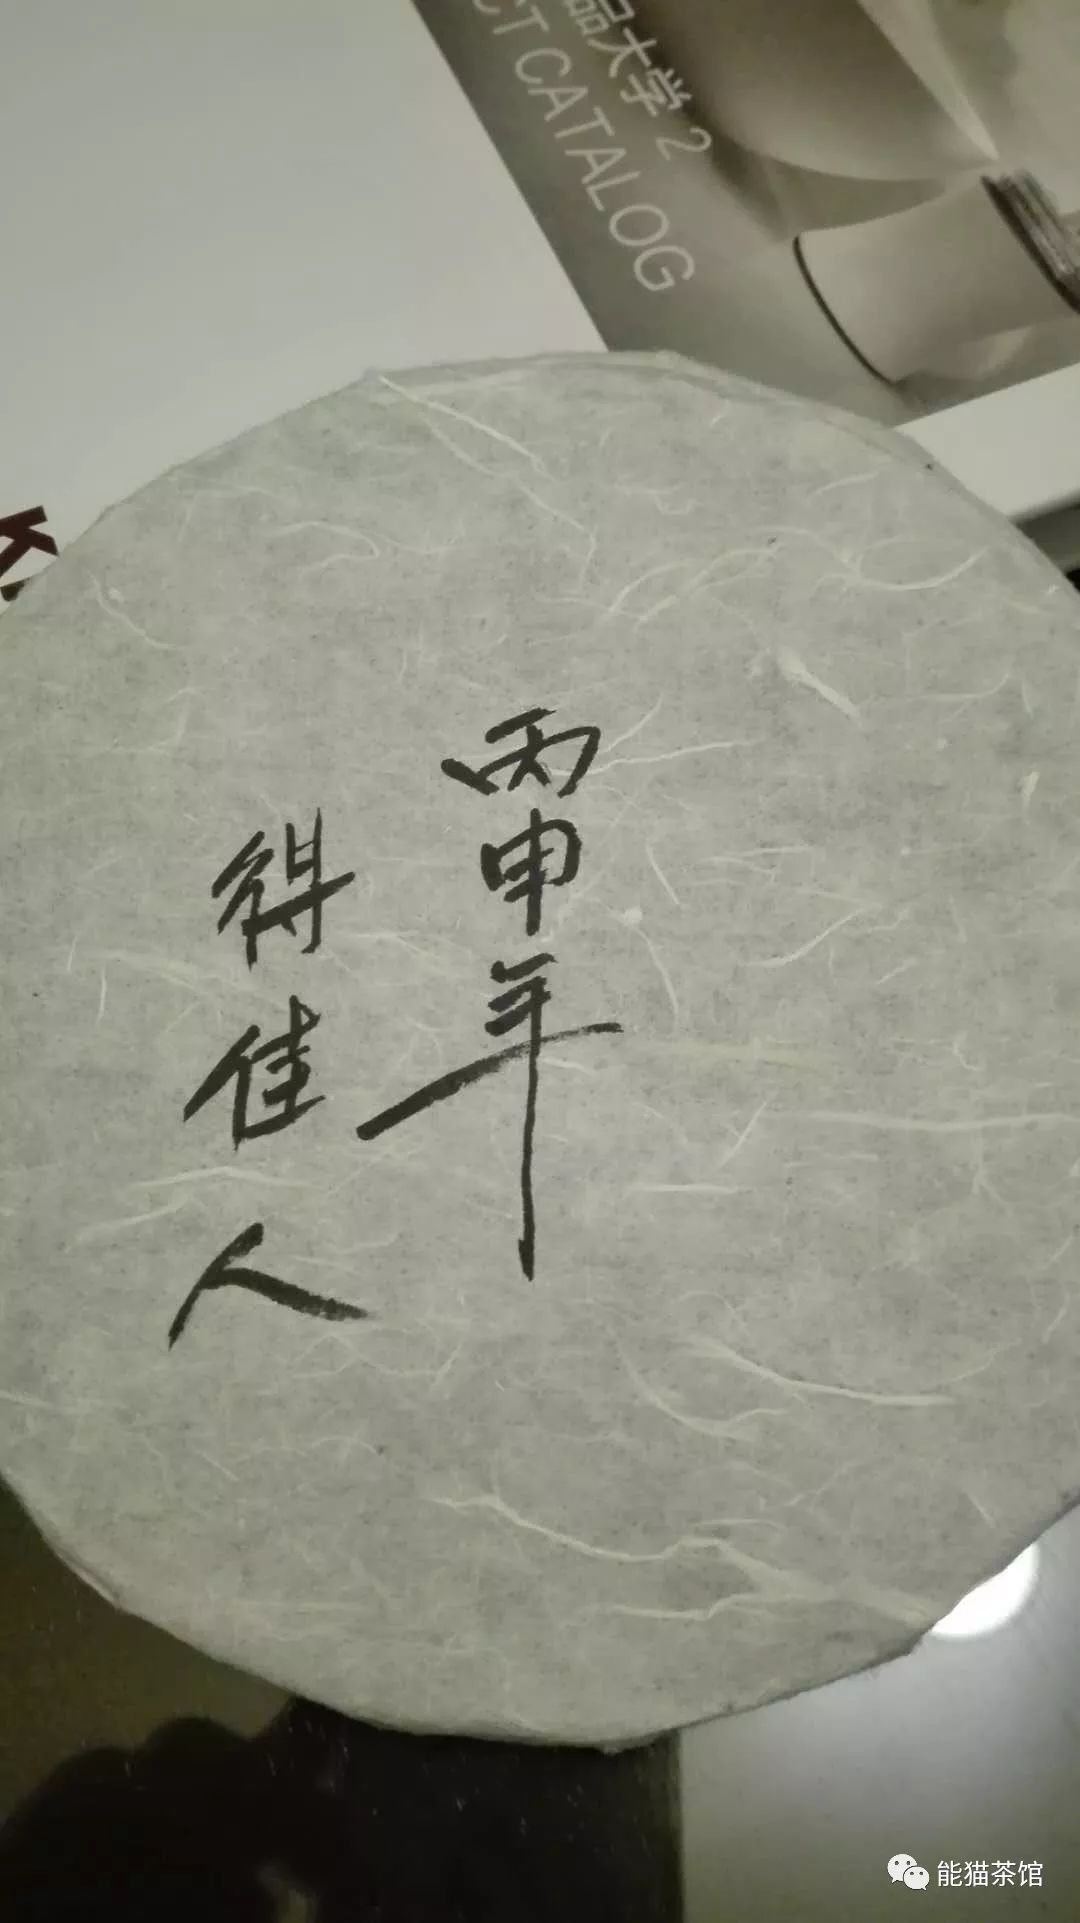 品大学 2
CT CATALOG
K
丙申年
得佳人
能猫茶馆